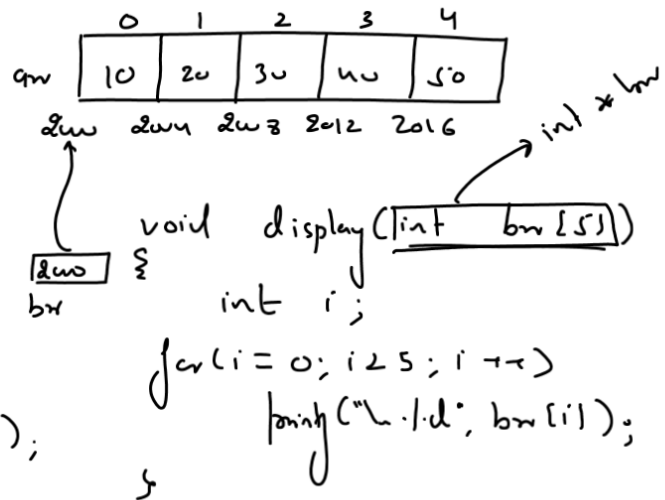 0 1 2 3 4
arr 10 20 30 40 50
2000 2004 2008 2012 2016
int * brr
void display(int brr[5])
2000 {
brr
int i;
for(i = 0; i < 5; i++)
printf("\n%d", brr[i]);
);
}